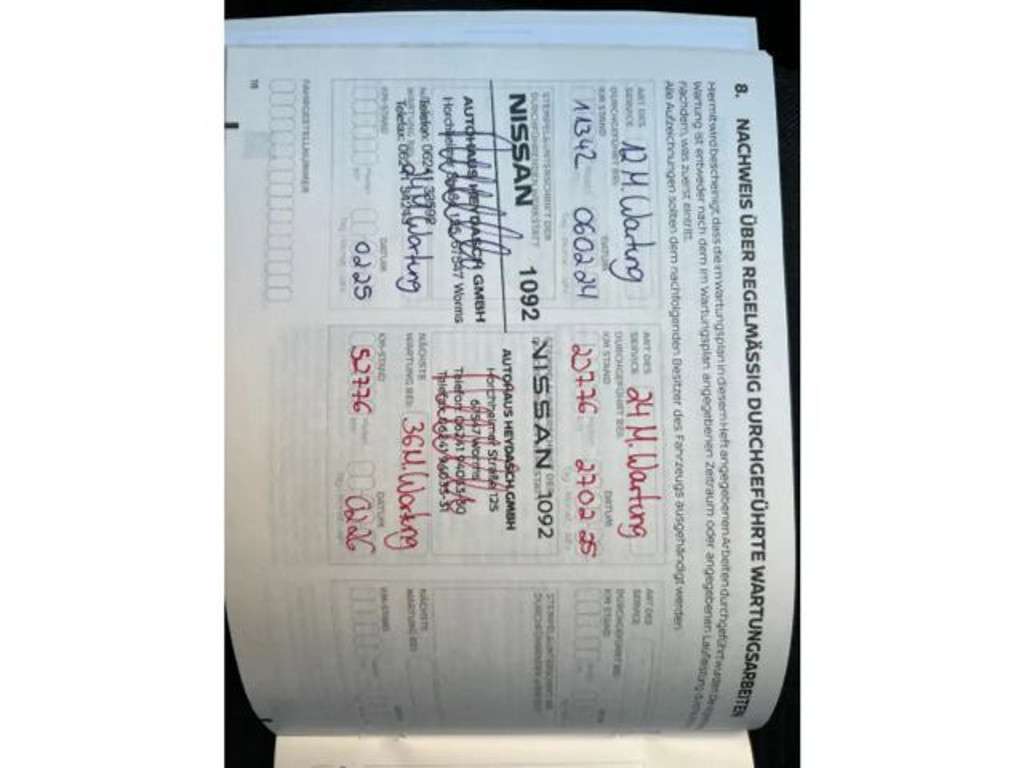 8. NACHWEIS ÜBER REGELMÄSSIG DURCHGEFÜHRTE WARTUNGSARBEITEN
Hiermit wird bescheinigt, dass die im Wartungsplan in diesem Heft angegebenen Arbeiten durchgeführt wurden. Die
Wartung ist entweder nach dem im Wartungsplan angegebenen Zeitraum oder angegebenen Laufleistung
nachdem, was zuerst eintritt.
Alle Aufzeichnungen sollten dem nachfolgenden Besitzer des Fahrzeugs ausgehändigt werden.
ART DES
SERVICE 12 M. Wartung
DURCHGEFÜHRT BEI:
KM STAND DATUM
11342 060224
STEMPEL/UNTERSCHRIFT DER
DURCHFÜHRENDEN WERKSTATT
NISSAN 1092
AUTOHAUS HEYDASCH GMBH
67547 Worms
24 M. Wartung
KM-STAND DATUM
0225
ART DES
SERVICE 24 M. Wartung
DURCHGEFÜHRT BEI:
KM STAND DATUM
23776 270225
NISSAN 1092
AUTOHAUS HEYDASCH GMBH
Horchheimer Straße 125
67547 Worms
NÄCHSTE
WARTUNG BEI: 36 M. Wartung
KM-STAND DATUM
52776 0226
ART DES
SERVICE
DURCHGEFÜHRT BEI:
KM STAND
STEMPEL/UNTERSCHRIFT DER
DURCHFÜHRENDEN WERKSTATT
NÄCHSTE
WARTUNG BEI:
KM-STAND
FAHRGESTELLNUMMER
18